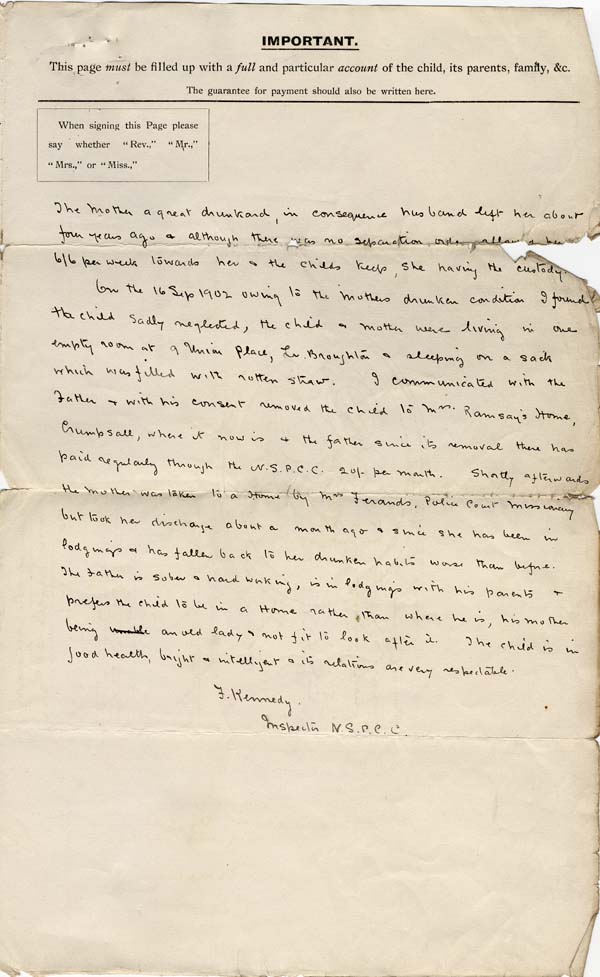 IMPORTANT.
This page must be filled up with a full and particular account of the child, its parents, family, &c.
The guarantee for payment should also be written here.
When signing this Page please
say whether "Rev.," "Mr.,"
"Mrs.," or "Miss.,"
The Mother a great drunkard, in consequence husband left her about
four years ago & although there was no separation order allowed her
6/6 per week towards her & the childs keep, she having the custody.
On the 16 Sep 1902 owing to the mothers drunken condition I found
the child sadly neglected, the child & mother were living in one
empty room at 9 Union Place, Lr. Broughton & sleeping on a sack
which was filled with rotten straw. I communicated with the
Father & with his consent removed the child to Mrs. Ramsay's Home,
Crumpsall, where it now is & the father since its removal there has
paid regularly through the N.S.P.C.C. 20/- per month. Shortly afterwards
the mother was taken to a Home by Mrs Ferands, Police Court Missionary
but took her discharge about a month ago & since she has been in
lodgings & has fallen back to her drunken habits worse than before.
The Father is sober & hard working, is in lodgings with his parents &
prefers the child to be in a Home rather than where he is, his mother
being an old lady & not fit to look after it. The child is in
good health, bright & intelligent & its relations are very respectable.
F. Kennedy.
Inspector N.S.P.C.C.